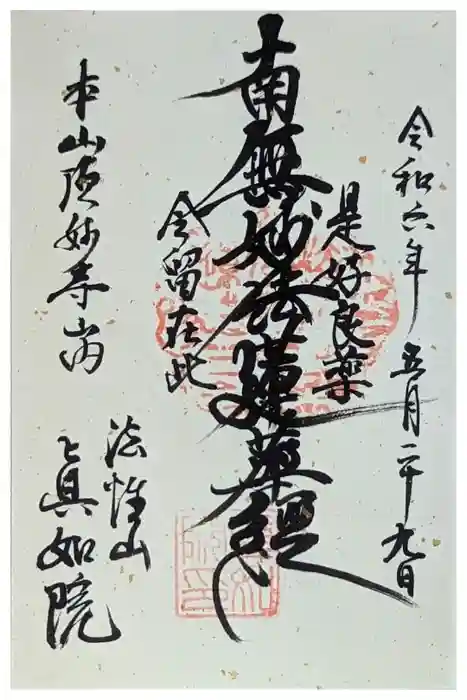 令和六年五月二十九日
是好良薬
南無妙法蓮華経
今留在此
本山頂妙寺山内
法性山
真如院